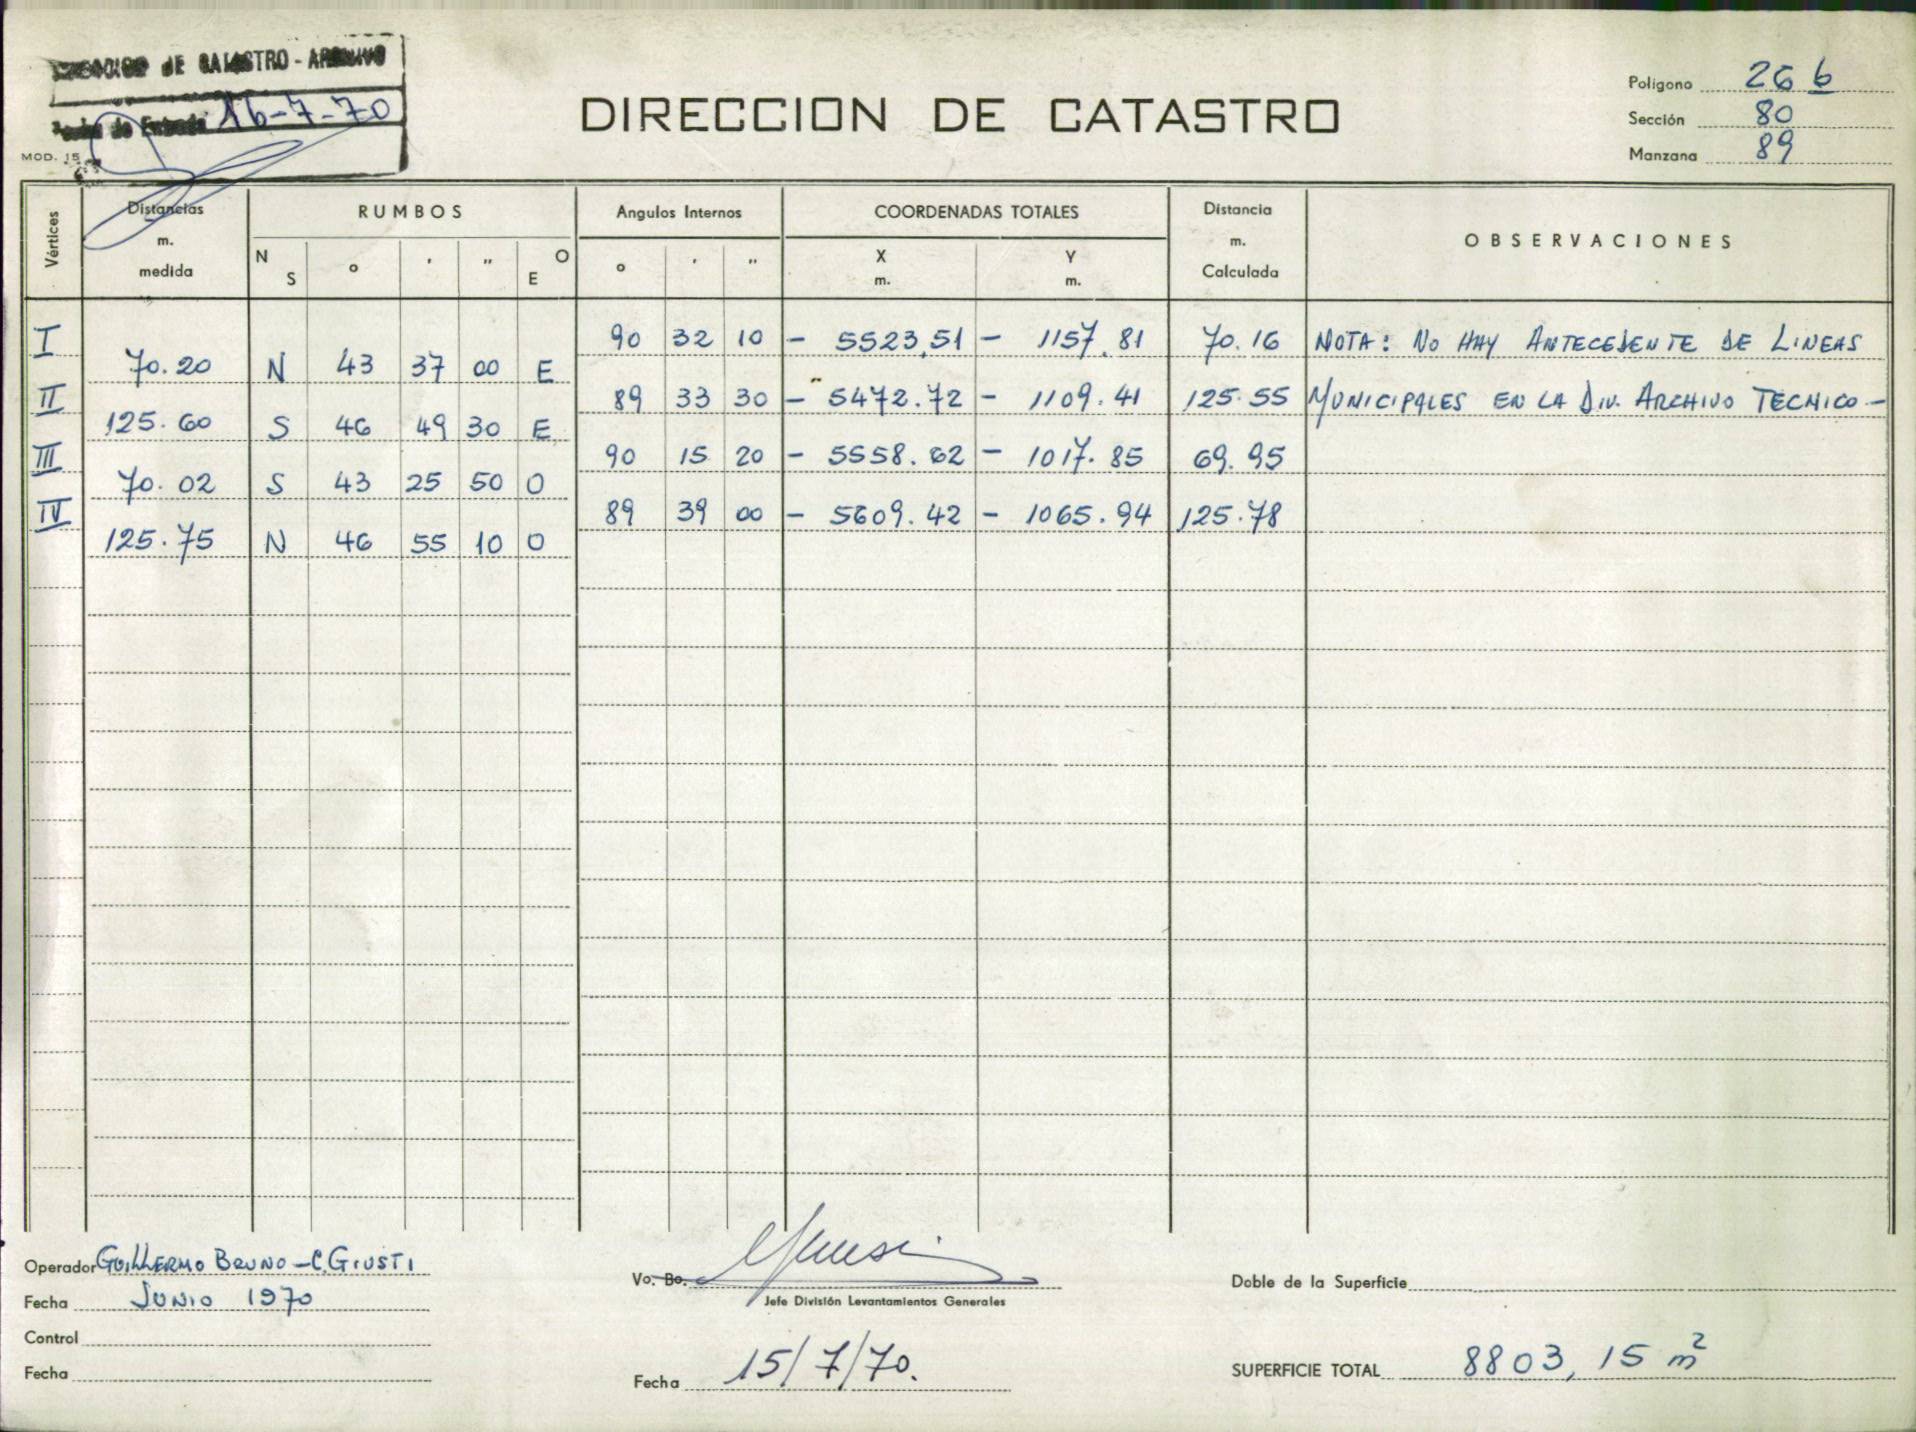 DE CATASTRO - ARCHIVO
Fecha de Entrada 16-7-70
MOD. 15
DIRECCION DE CATASTRO
Polígono 26 b
Sección 80
Manzana 89
Vértices
Distancias m. medida
RUMBOS
N S ° ' " O E
Angulos Internos
° ' "
COORDENADAS TOTALES
X m. Y m.
Distancia m. Calculada
OBSERVACIONES
I 90 32 10 - 5523,51 - 1157.81 70.16 NOTA: NO HAY ANTECEDENTE DE LINEAS
70.20 N 43 37 00 E
II 89 33 30 - 5472.72 - 1109.41 125.55 MUNICIPALES EN LA DIV. ARCHIVO TECNICO -
125.60 S 46 49 30 E
III 90 15 20 - 5558.62 - 1017.85 69.95
70.02 S 43 25 50 O
IV 89 39 00 - 5609.42 - 1065.94 125.78
125.75 N 46 55 10 O
Operador GUILLERMO BRUNO - C. GIUSTI
Fecha JUNIO 1970
Control
Fecha
Vo. Bo.
Jefe División Levantamientos Generales
Fecha 15/7/70.
Doble de la Superficie
SUPERFICIE TOTAL 8803,15 m²